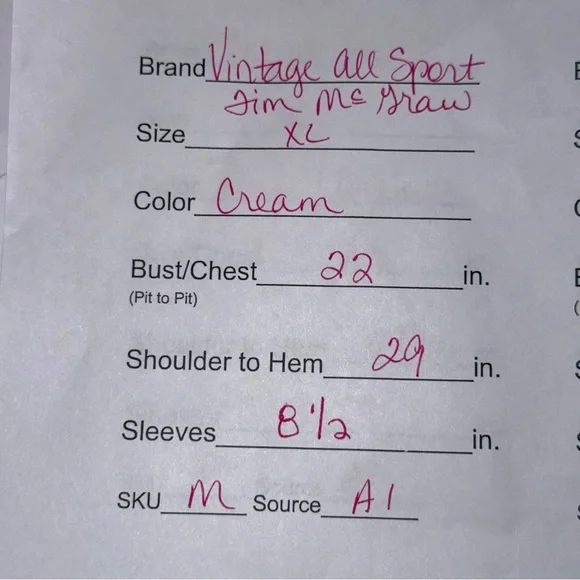 Brand Vintage All Sport
Tim McGraw
Size XL
Color Cream
Bust/Chest 22 in.
(Pit to Pit)
Shoulder to Hem 29 in.
Sleeves 8 1/2 in.
SKU M Source A1